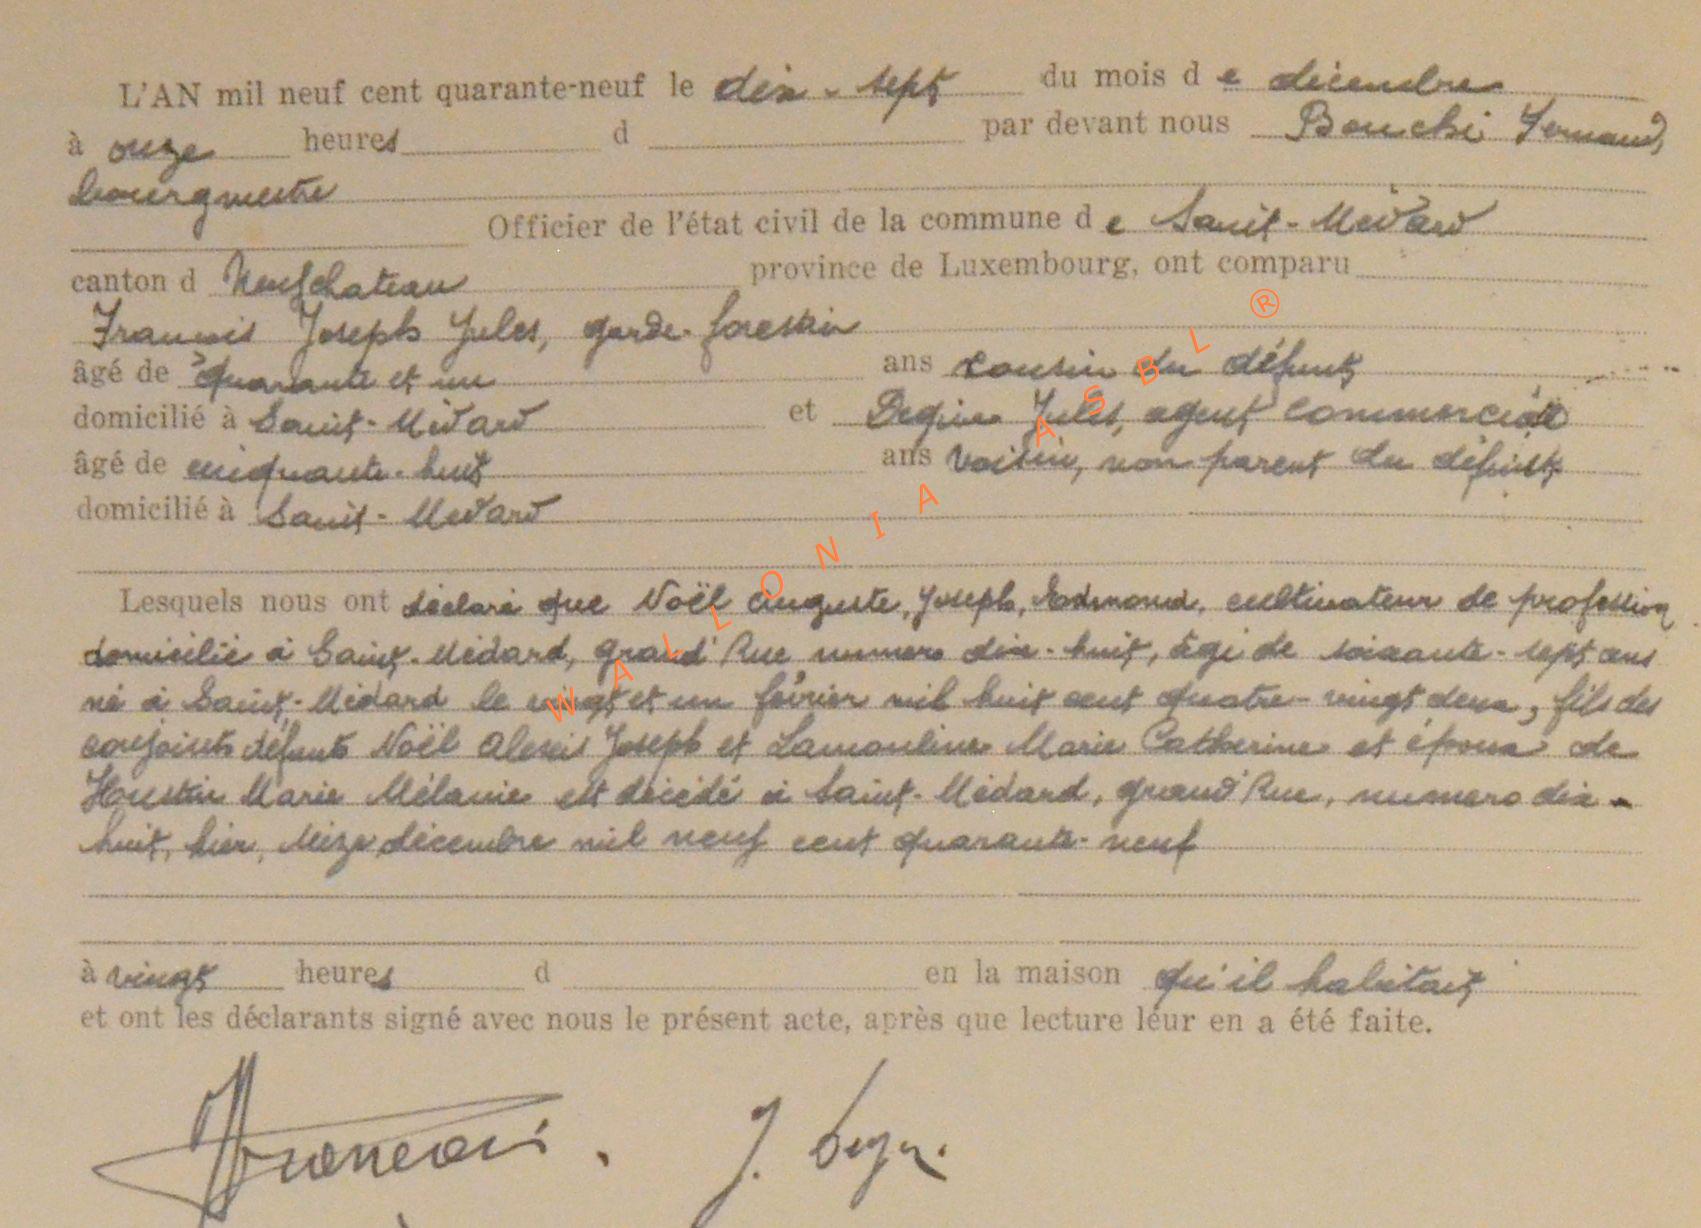 L'AN mil neuf cent quarante-neuf le dix-sept du mois de décembre
à onze heures d par devant nous Bouché Fernand,
bourgmestre
Officier de l'état civil de la commune de Saint-Médard
canton d Neufchateau province de Luxembourg, ont comparu
François Joseph Jules, garde-forestier
âgé de quarante et un ans cousin du défunt
domicilié à Saint-Médard et Jules, agent commercial
âgé de cinquante-huit ans voisin, non parent du défunt
domicilié à Saint-Médard
Lesquels nous ont déclaré que Noël Auguste, Joseph, Edmond, cultivateur de profession
domicilié à Saint-Médard, grand'Rue numero dix-huit, âgé de soixante-sept ans
né à Saint-Médard le vingt et un février mil huit cent quatre-vingt deux, fils des
conjoints défunts Noël Alexis Joseph et Lamouline Marie Catherine et époux de
Marie Mélanie est décédé à Saint-Médard, grand'Rue, numero dix-
huit, hier, seize décembre mil neuf cent quarante-neuf
à vingt heures d en la maison qu'il habitait
et ont les déclarants signé avec nous le présent acte, après que lecture leur en a été faite.
WALLONIA ASBL ®